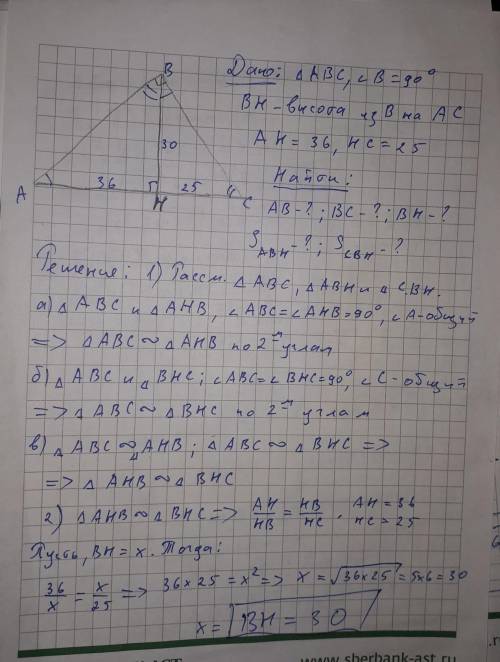 B
Дано: △ABC, ∠B = 90°
BH - высота из B на AC
30
AH = 36, HC = 25
Найти:
A 36 H 25 C
AB - ?; BC - ?; BH - ?
S ABH - ?; S CBH - ?
Решение: 1) Рассм. △ABC, △ABH и △CBH.
а) △ABC и △AHB, ∠ABC = ∠AHB = 90°, ∠A - общий
=> △ABC ∼ △AHB по 2-м углам
б) △ABC и △BHC; ∠ABC = ∠BHC = 90°, ∠C - общий
=> △ABC ∼ △BHC по 2-м углам
в) △ABC ∼ △AHB; △ABC ∼ △BHC =>
=> △AHB ∼ △BHC
2) △AHB ∼ △BHC => AH/HB = HB/HC. AH = 36 HC = 25
Пусть, BH = x. Тогда:
36/x = x/25 => 36×25 = x² => x = √36×25 = 5×6 = 30
x = BH = 30
www.sberbank-ast.ru